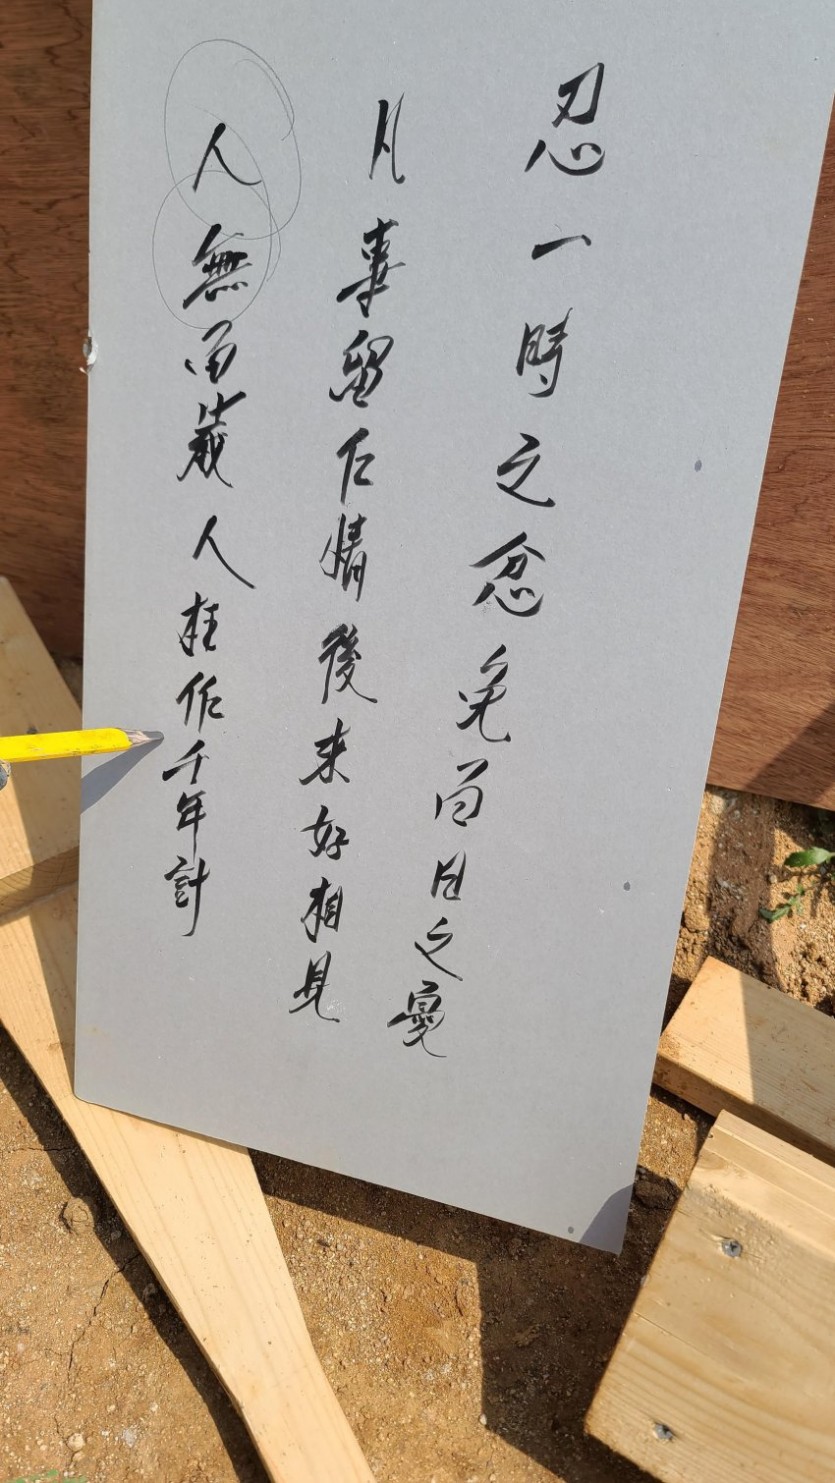 忍一時之忿免百日之憂
凡事留仁情後来好相見
人無百歲人枉作千年計